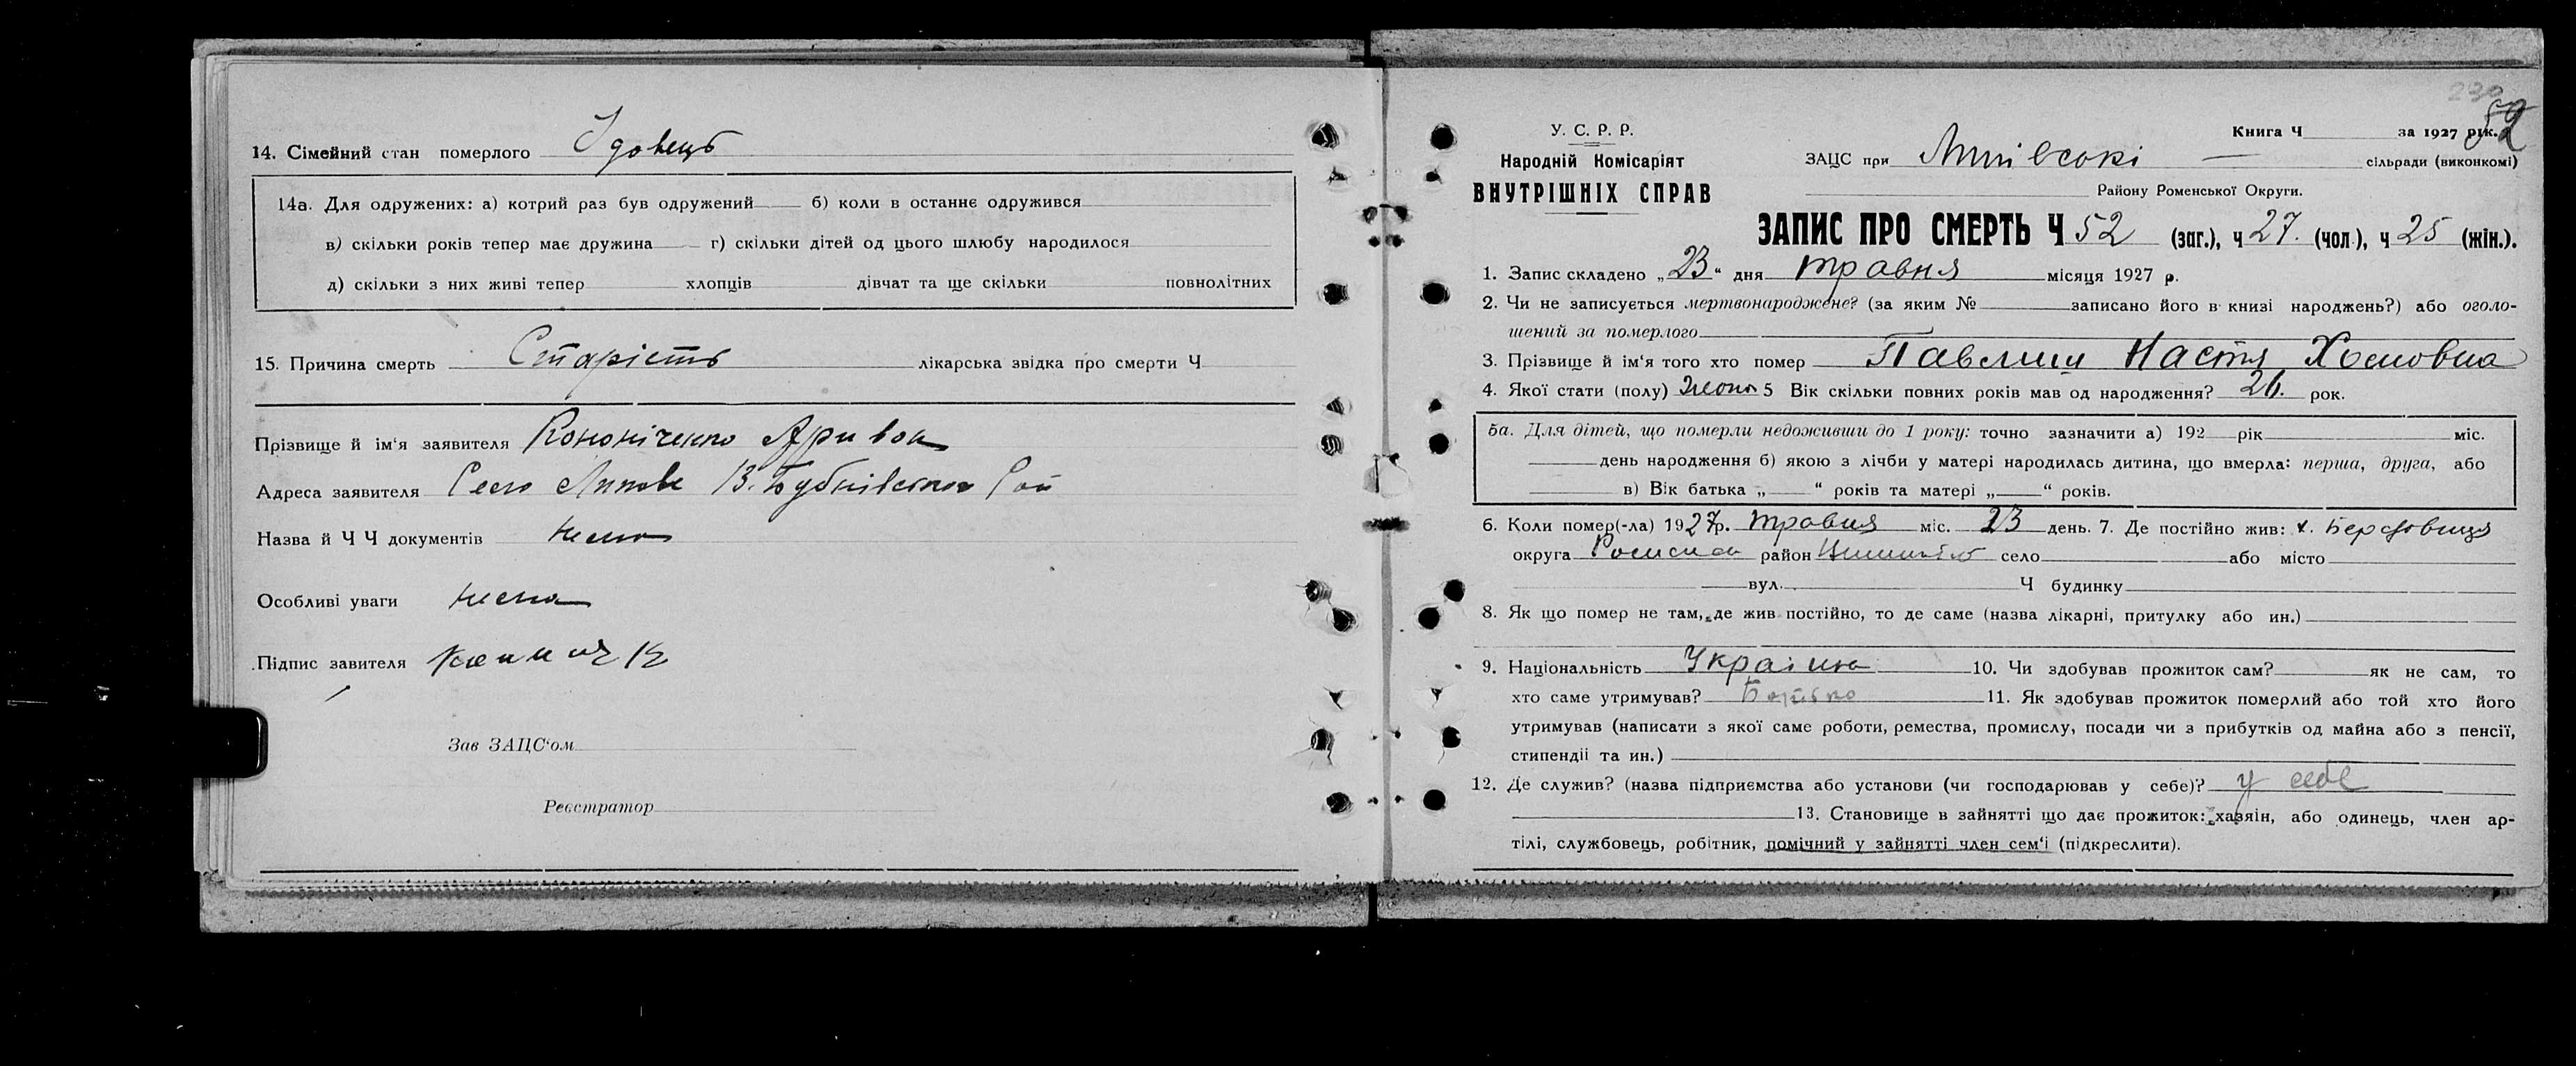 14. Сімейний стан померлого Удовець
14а. Для одружених: а) котрий раз був одружений б) коли в останнє одружився
в) скільки років тепер має дружина г) скільки дітей од цього шлюбу народилося
д) скільки з них живі тепер хлопців дівчат та ще скільки повнолітних
15. Причина смерть Старість лікарська звідка про смерти Ч
Прізвище й ім'я заявителя
Адреса заявителя Село Липове
Назва й Ч Ч документів Нема
Особливі уваги Нема
Підпис завителя
Зав ЗАЦС'ом
Реєстратор
230
52
У. С. Р. Р.
Народній Комісаріят
ВНУТРІШНІХ СПРАВ
Книга Ч за 1927 рік.
ЗАЦС при сільради (виконкомі)
Району Роменської Округи.
ЗАПИС ПРО СМЕРТЬ Ч 52 (заг.), ч 27. (чол.), ч 25 (жін.).
1. Запис складено „23" дня травня місяця 1927 р.
2. Чи не записується мертвонароджене? (за яким № записано його в книзі народжень?) або оголо-
шений за померлого
3. Прізвище й ім'я того хто помер Павлиш Настя
4. Якої стати (полу) 5 Вік скільки повних років мав од народження? 26. рок.
5а. Для дітей, що померли недоживши до 1 року: точно зазначити а) 192 рік міс.
день народження б) якою з лічби у матері народилась дитина, що вмерла: перша, друга, або
в) Вік батька „ " років та матері „ " років.
6. Коли помер(-ла) 1927р. травня міс. 23 день. 7. Де постійно жив: х.
округа район село або місто
вул. Ч будинку
8. Як що помер не там, де жив постійно, то де саме (назва лікарні, притулку або ин.)
9. Національність 10. Чи здобував прожиток сам? як не сам, то
хто саме утримував? Батько 11. Як здобував прожиток померлий або той хто його
утримував (написати з якої саме роботи, ремества, промислу, посади чи з прибутків од майна або з пенсії,
стипендії та ин.)
12. Де служив? (назва підприємства або установи (чи господарював у себе)? у себе
13. Становище в зайнятті що дає прожиток: хазяін, або одинець, член ар-
тілі, службовець, робітник, помічний у зайнятті член сем'і (підкреслити).